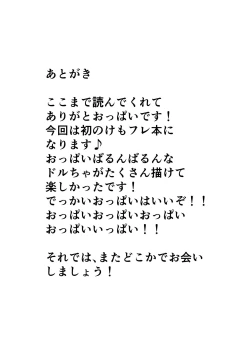 あとがき
ここまで読んでくれて
ありがとおっぱいです！
今回は初のけもフレ本に
なります♪
おっぱいばるんばるんな
ドルちゃがたくさん描けて
楽しかったです！
でっかいおっぱいはいいぞ！！
おっぱいおっぱいおっぱい
おっぱいいっぱい！！
それでは、またどこかでお会い
しましょう！